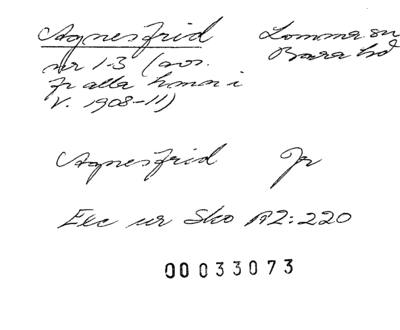 Agnesfrid Lomma sn
nr 1-3 (avs. Bara hd
fr alla hmn i
V. 1908-11)
Agnesfrid Jr
Exc ur Sko A2:220
00033073